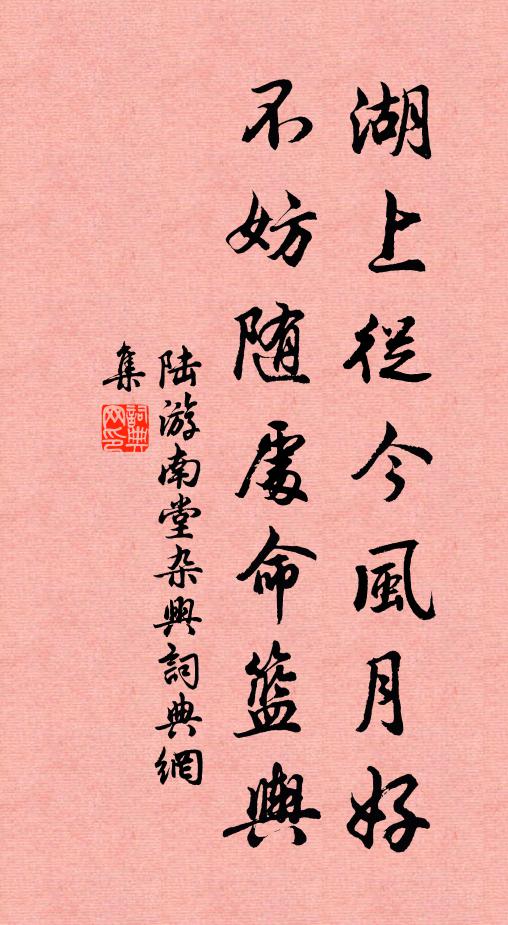 湖上從今風月好
不妨随處命籃輿
陆游南堂杂興詞典網
集
詞典网印